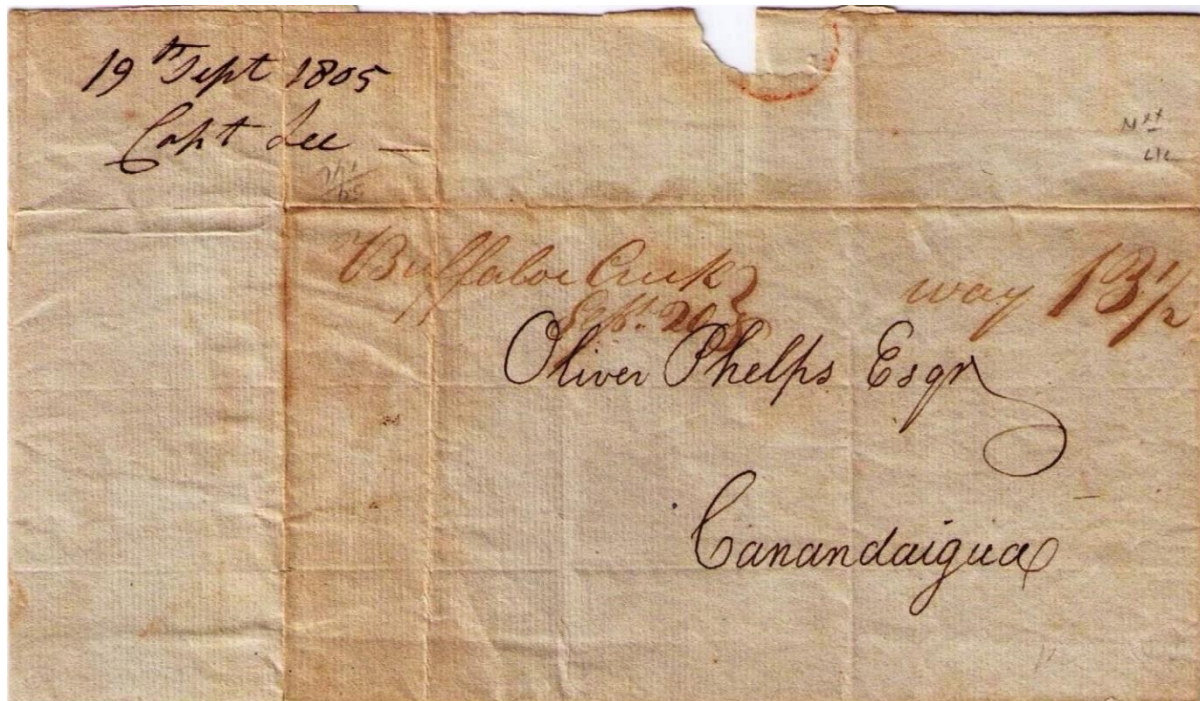 19th Sept 1805
Capt Lee —
Buffaloe Creek
Sept. 20
way 13 1/2
Oliver Phelps Esqr
Canandaigua